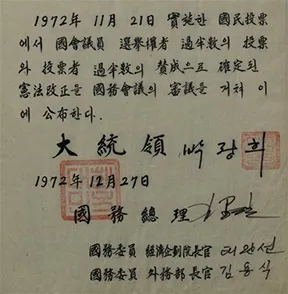 1972年 11月 21日 實施한 國民投票
에서 國會議員 選擧權者 過半數의 投票
와 投票者 過半數의 賛成으로 確定된
憲法改正을 國務會議의 審議를 거쳐 이
에 公布한다.
大統領 박정희
1972年12月27日
國務總理
國務委員 經濟企劃院長官 태완선
國務委員 外務部長官 김용식